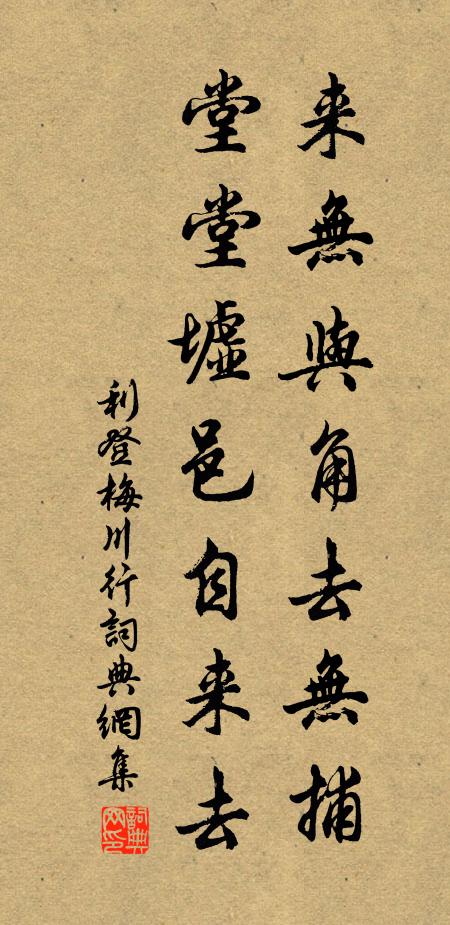 来無與角去無捕
堂堂墟邑自来去
利登梅川行詞典網集
詞典网印